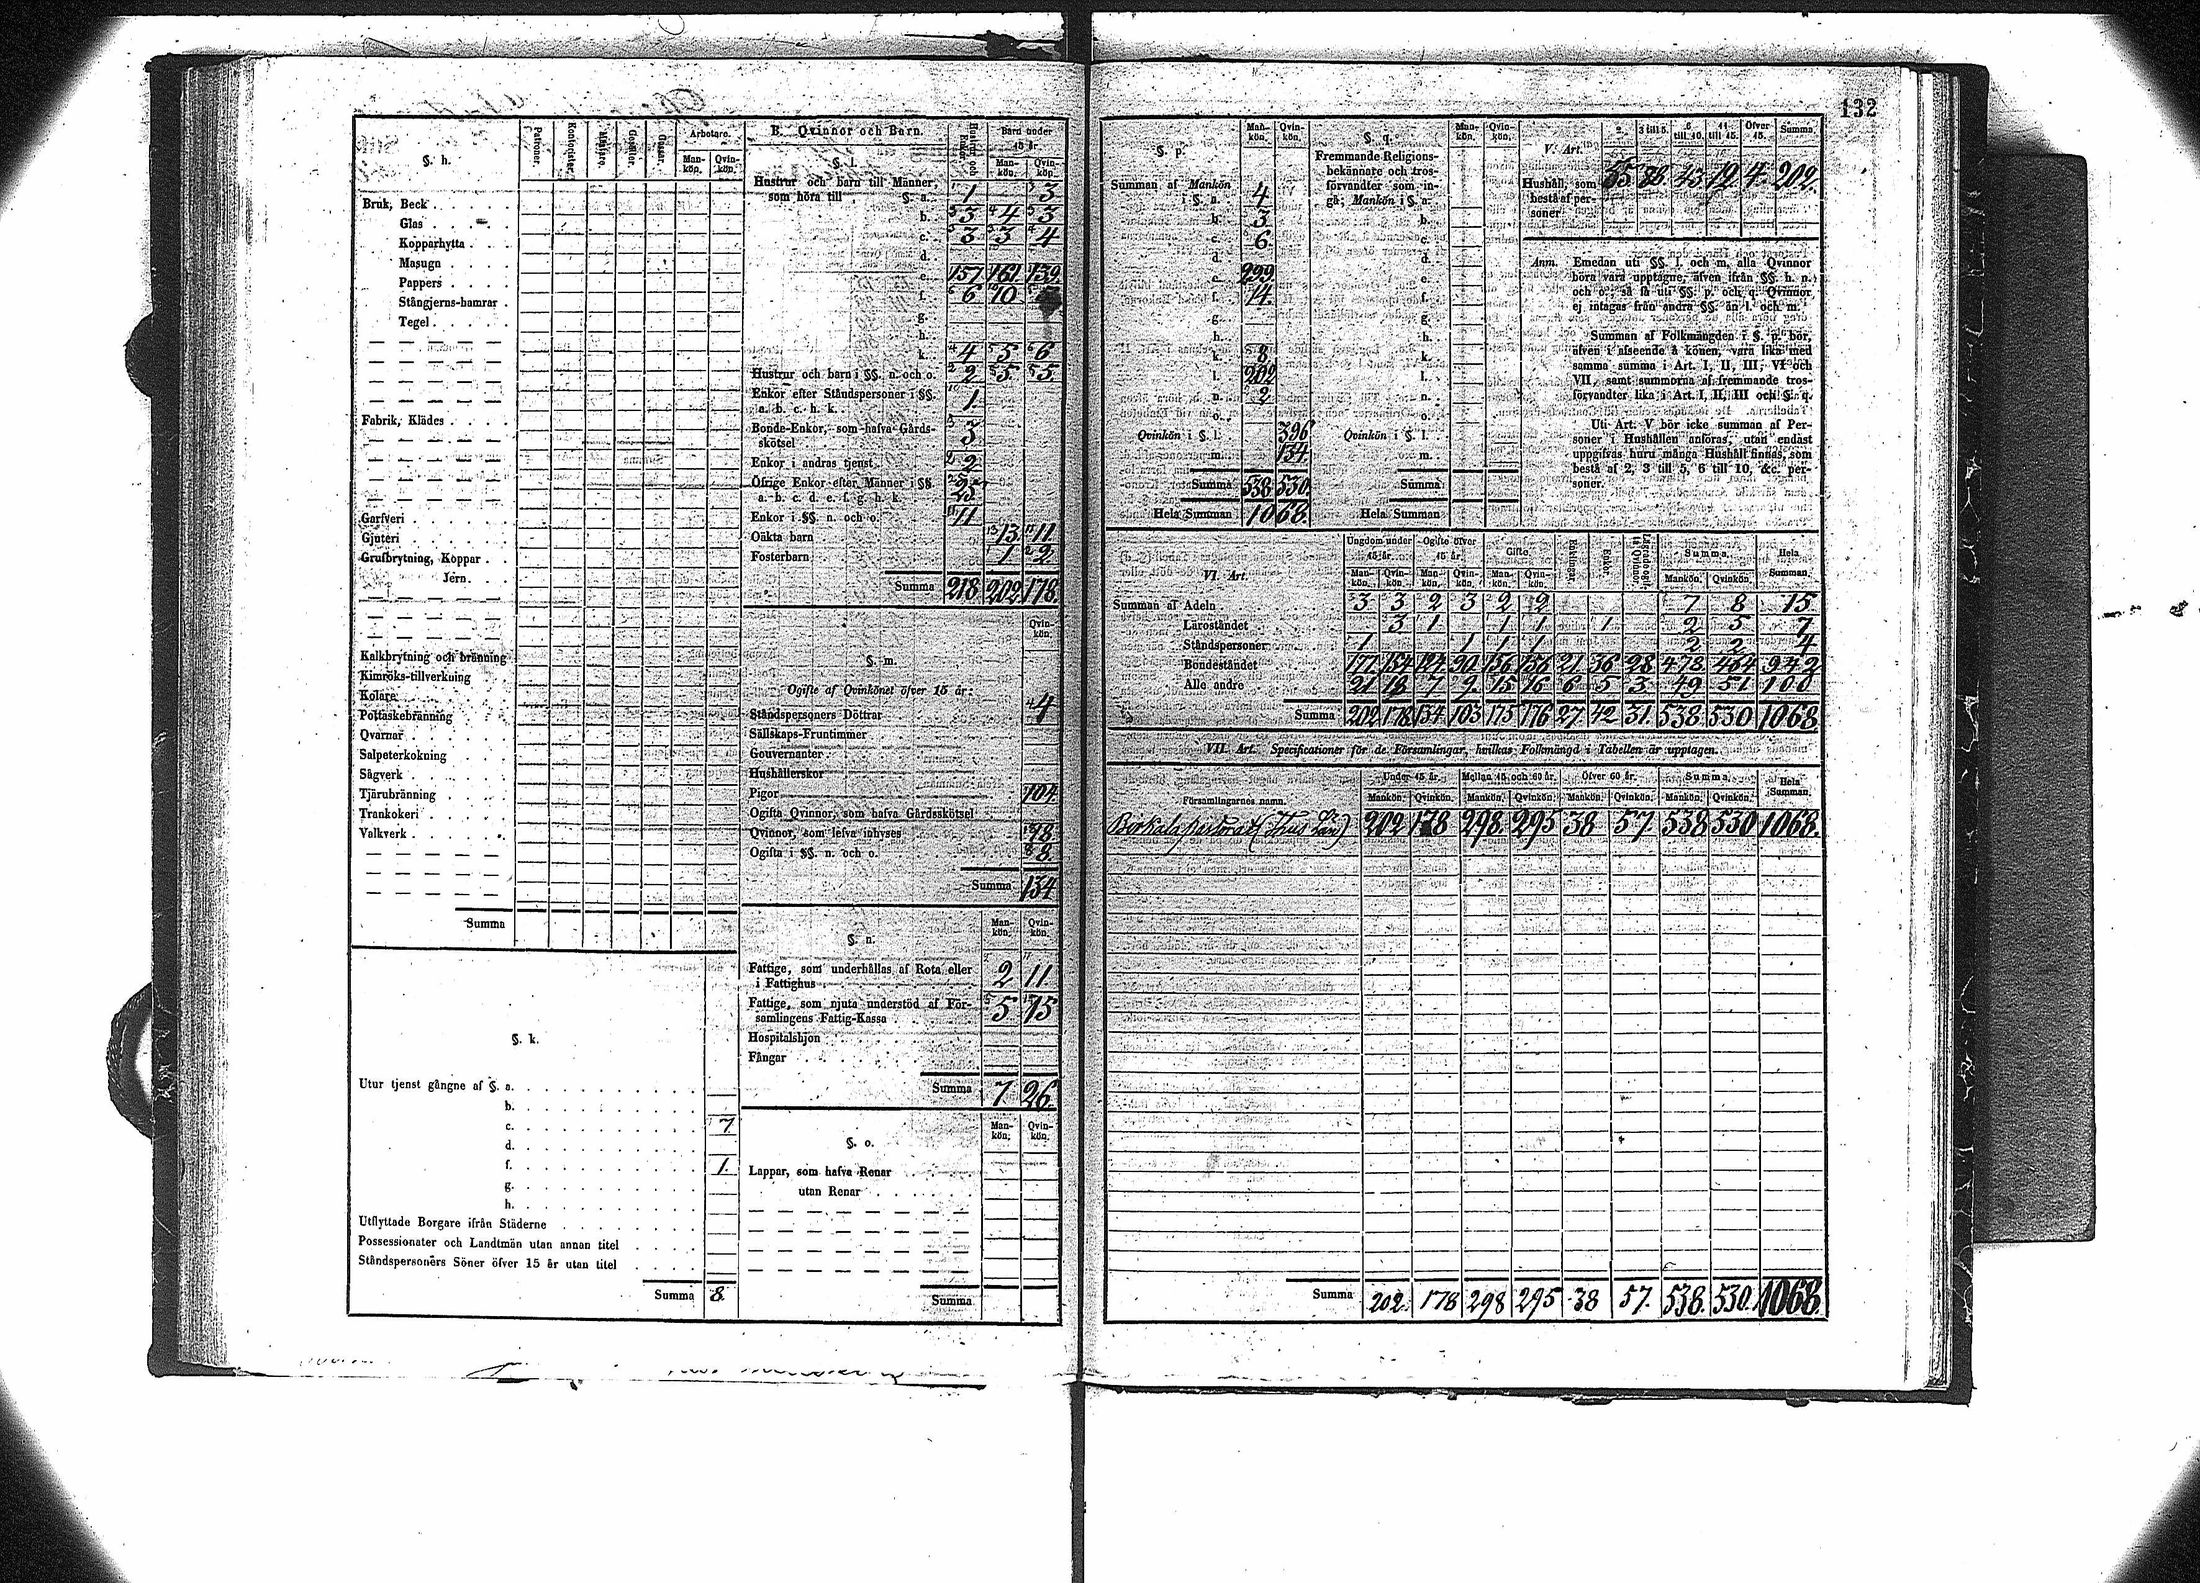 132
§. h.
Patroner.
Kontorister.
Mästare.
Gesäller.
Gossar.
Arbetare.
Mankön.
Qvinkön.
Bruk, Beck
Glas
Kopparhytta
Masugn
Pappers
Stångjerns-hamrar
Tegel
Fabrik, Klädes
Garfveri
Gjuteri
Grufbrytning, Koppar
Jern
Kalkbrytning och bränning
Kimröks-tillverkning
Kolare
Pottaskebränning
Qvarnar
Salpeterkokning
Sågverk
Tjärubränning
Trankokeri
Valkverk
Summa
§. k.
Utur tjenst gångne af §. a.
b.
c. 7
d.
f. 1.
g.
h.
Utflyttade Borgare ifrån Städerne
Possessionater och Landtmän utan annan titel
Ståndspersoners Söner öfver 15 år utan titel
Summa 8.
B. Qvinnor och Barn.
Hustrur och Enkor.
Barn under 15 år.
Mankön. Qvinkön.
§. l.
Hustrur och barn till Männer,
som höra till §. a. 1 3
b. 3 4 3
c. 3 3 4
d.
e. 157 161 139
f. 6 10
g.
h.
k. 4 5 6
Hustrur och barn i §§. n. och o. 2 5 5.
Enkor efter Ståndspersoner i §§.
a. b. c. h. k. 1
Bonde-Enkor, som hafva Gårds-
skötsel 3
Enkor i andras tjenst 2
Öfrige Enkor efter Männer i §§
a. b. c. d. e. f. g. h. k. 25
Enkor i §§. n. och o. 11
Oäkta barn 13 11
Fosterbarn 1 2
Summa 218 202 178
§. m.
Qvinkön
Ogifte af Qvinkönet öfver 15 år:
Ståndspersoners Döttrar 4
Sällskaps-Fruntimmer
Gouvernanter
Hushållerskor
Pigor 104
Ogifta Qvinnor, som hafva Gårdsskötsel
Qvinnor, som lefva inhyses 18
Ogifta i §§. n. och o. 8
Summa 134
§. n.
Mankön. Qvinkön.
Fattige, som underhållas af Rota eller
i Fattighus 2 11
Fattige, som njuta understöd af För-
samlingens Fattig-Kassa 5 15
Hospitalshjon
Fångar
Summa 7 26.
§. o.
Mankön. Qvinkön.
Lappar, som hafva Renar
utan Renar
Summa
§. p.
Mankön. Qvinkön.
Summan af Mankön
i §. a. 4
b. 3
c. 6
d.
e. 299
f. 14
g.
h.
k. 8
l. 202
n. 2
o.
Qvinkön i §. l. 396
m. 134
Summa 538 530.
Hela Summan 1068.
§. q.
Mankön. Qvinkön.
Fremmande Religions-
bekännare och tros-
förvandter som in-
gå: Mankön i §. a.
b.
c.
d.
e.
f.
g.
h.
k.
l.
n.
o.
Qvinkön i §. l.
m.
Summa
Hela Summan
V. Art.
2. 3 till 5. 6 till 10. 11 till 15. Öfver 15. Summa.
Hushåll, som
bestå af per-
soner 55 88 43 12 4. 202.
Anm. Emedan uti §§. l. och m. alla Qvinnor
böra vara upptagne, äfven ifrån §§. h. n.
och o. så få uti §§. p. och q. Qvinnor
ej intagas från andra §§. än l. och m.
Summan af Folkmängden i §. p. bör,
äfven i afseende å könen, vara lika med
samma summa i Art. I, II, III, VI och
VII, samt summorna af fremmande tros-
förvandter lika i Art. I, II, III och §. q.
Uti Art. V bör icke summan af Per-
soner i Hushållen anföras, utan endast
uppgifvas huru många Hushåll finnas, som
bestå af 2, 3 till 5, 6 till 10, &c. per-
soner.
VI. Art.
Ungdom under 15 år. Ogifte öfver 15 år. Gifte. Enklingar. Enkor. Summa. Hela Summan.
Mankön. Qvinkön. Mankön. Qvinkön. Mankön. Qvinkön. Mankön. Qvinkön.
Summan af Adeln 3 3 2 3 2 2 7 8 15
Läroståndet 3 1 1 1 1 2 5 7
Ståndspersoner 1 1 1 1 2 2 4
Bondeståndet 177 154 124 90 156 156 21 36 28 478 464 942
Alle andre 21 18 7 9 15 16 6 5 3 49 51 100
Summa 202 178 134 103 175 176 27 42 31 538 530 1068
VII. Art. Specificationer för de Församlingar, hvilkas Folkmängd i Tabellen är upptagen.
Församlingarnes namn.
Under 15 år. Mellan 15 och 60 år. Öfver 60 år. Summa. Hela Summan.
Mankön. Qvinkön. Mankön. Qvinkön. Mankön. Qvinkön. Mankön. Qvinkön.
pastorat 202 178 298. 295 38 57. 538 530 1068.
Summa 202. 178 298 295 38 57. 538. 530. 1068.